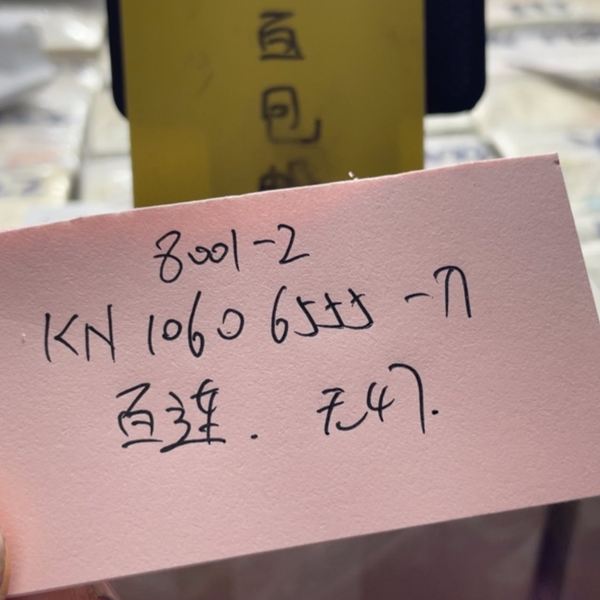 百包
8001-2
KN 1060 6555 -万
百连. 无47.